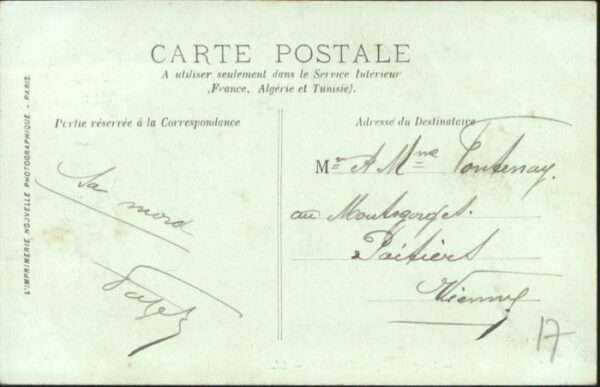 CARTE POSTALE
A utiliser seulement dans le Service Intérieur
(France, Algérie et Tunisie).
Partie réservée à la Correspondance
Adresse du Destinataire
L'IMPRIMERIE NOUVELLE PHOTOGRAPHIQUE. - PARIS.
Mr & Mme Fontenay
au Montgorges.
Poitiers
Vienne
17